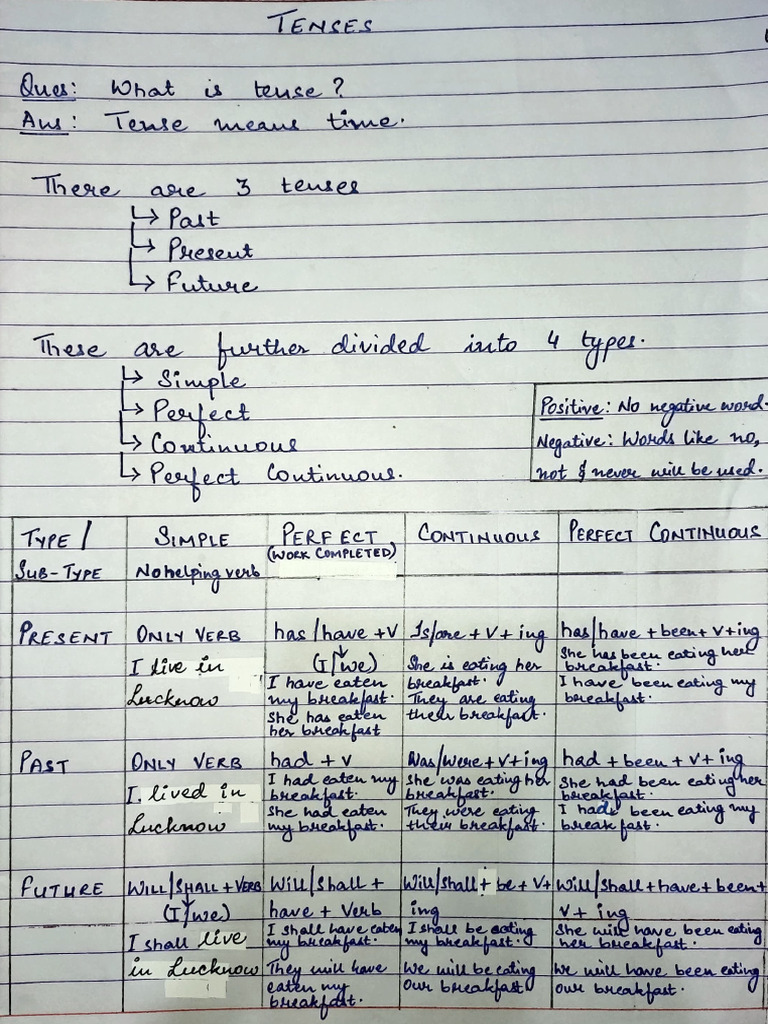 TENSES
Ques: What is tense?
Ans: Tense means time.
There are 3 tenses
Past
Present
Future
These are further divided into 4 types.
Simple
Perfect
Continuous
Perfect Continuous.
Positive: No negative word.
Negative: Words like no,
not & never will be used.
TYPE/
SUB-TYPE
SIMPLE
No helping verb
PERFECT
(WORK COMPLETED)
CONTINUOUS
PERFECT CONTINUOUS
PRESENT
ONLY VERB
I live in
Lucknow
has/have + V
(I/we)
I have eaten
my breakfast.
She has eaten
her breakfast
Is/are + V + ing
She is eating her
breakfast.
They are eating
their breakfast.
has/have + been + V + ing
She has been eating her
breakfast.
I have been eating my
breakfast.
PAST
ONLY VERB
I lived in
Lucknow
had + V
I had eaten my
breakfast.
She had eaten
my breakfast.
Was/Were + V + ing
She was eating her
breakfast.
They were eating
their breakfast.
had + been + V + ing
She had been eating her
breakfast.
I had been eating my
breakfast.
FUTURE
WILL/SHALL + VERB
(I/we)
I shall live
in Lucknow
Will/Shall +
have + Verb
I shall have eaten
my breakfast.
They will have
eaten my
breakfast.
Will/shall + be + V +
ing
I shall be eating
my breakfast.
We will be eating
our breakfast
Will/Shall + have + been +
V + ing
She will have been eating
her breakfast.
We will have been eating
our breakfast.